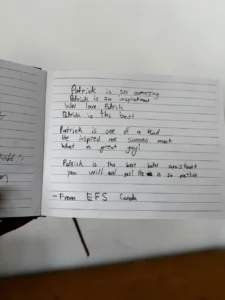 Patrick is so amazing
Patrick is so inspirational
We love Patrick
Patrick is the best
Patrick is one of a kind
He inspired me so much
What a great guy!
Patrick is the best hotel assistant
you will get! He is so
- From EFS Canada